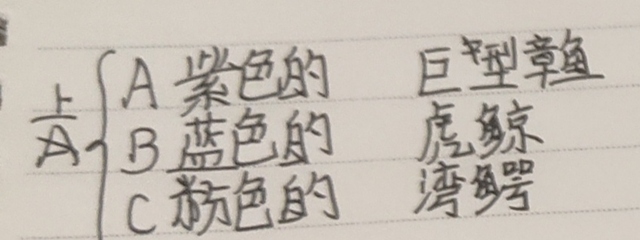 A 紫色的 巨型章鱼
B 蓝色的 虎鲸
C 粉色的 湾鳄